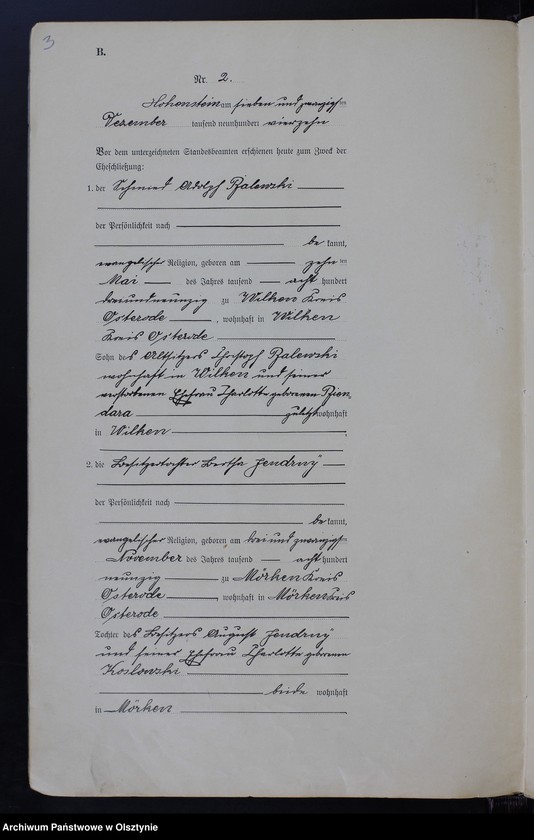 3
B.
Nr. 2.
Hohenstein am sieben und zwanzigsten
Dezember tausend neunhundert vierzehn
Vor dem unterzeichneten Standesbeamten erschienen heute zum Zweck der
Eheschließung:
1. der Schmied Adolph
der Persönlichkeit nach
be kannt,
evangelischer Religion, geboren am zehn ten
Mai des Jahres tausend acht hundert
dreiundneunzig zu Wilken Kreis
Osterode, wohnhaft in Wilken
Kreis Osterode
Sohn des Altsitzers Christoph
wohnhaft in Wilken und seiner
verstorbenen Ehefrau Charlotte geborenen
zuletzt wohnhaft
in Wilken,
2. die Besitzertochter Bertha Jendrny
der Persönlichkeit nach
be kannt,
evangelischer Religion, geboren am drei und zwanzigsten
November des Jahres tausend acht hundert
neunzig zu Mörken Kreis
Osterode, wohnhaft in Mörken Kreis
Osterode
Tochter des Besitzers August Jendrny
und seiner Ehefrau Charlotte geborenen
Koslowski
beide wohnhaft
in Mörken
Archiwum Państwowe w Olsztynie